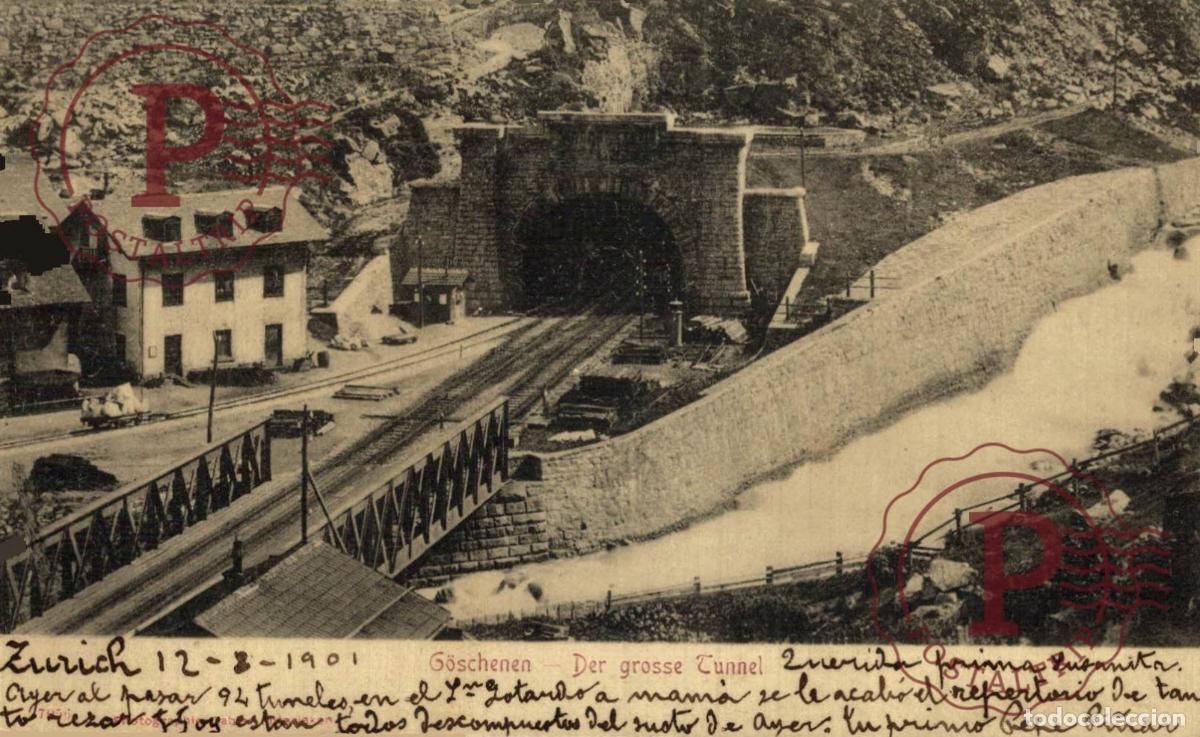 P
POSTALTRIP
P
Zurich 12-8-1901 Göschenen — Der grosse Tunnel Querida prima Susanita.
Ayer al pasar 94 tuneles, en el Sn Gotardo a mamá se le acabó el repertorio de tan
to rezar y hoy estan todos descompuestos del susto de Ayer. tu primo Pepe
todocoleccion